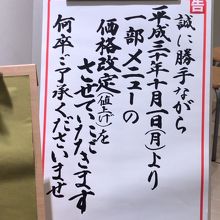 告
誠に勝手ながら
平成三十年十月一日(月)より
一部メニューの
価格改定(値上げ)を
させていただきます
何卒ご了承くださいませ